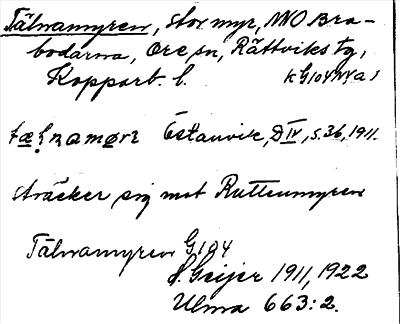 Tälnamyren, stor myr, NNO Bra-
bodarna, Ore sn, Rättviks tg,
Kopparb. l.
Östanvik, D IV, s. 36, 1911.
sträcker sig mot Ruttenmyren
Tälnamyren G 104
H. Geijer 1911, 1922
Ulma 663:2.